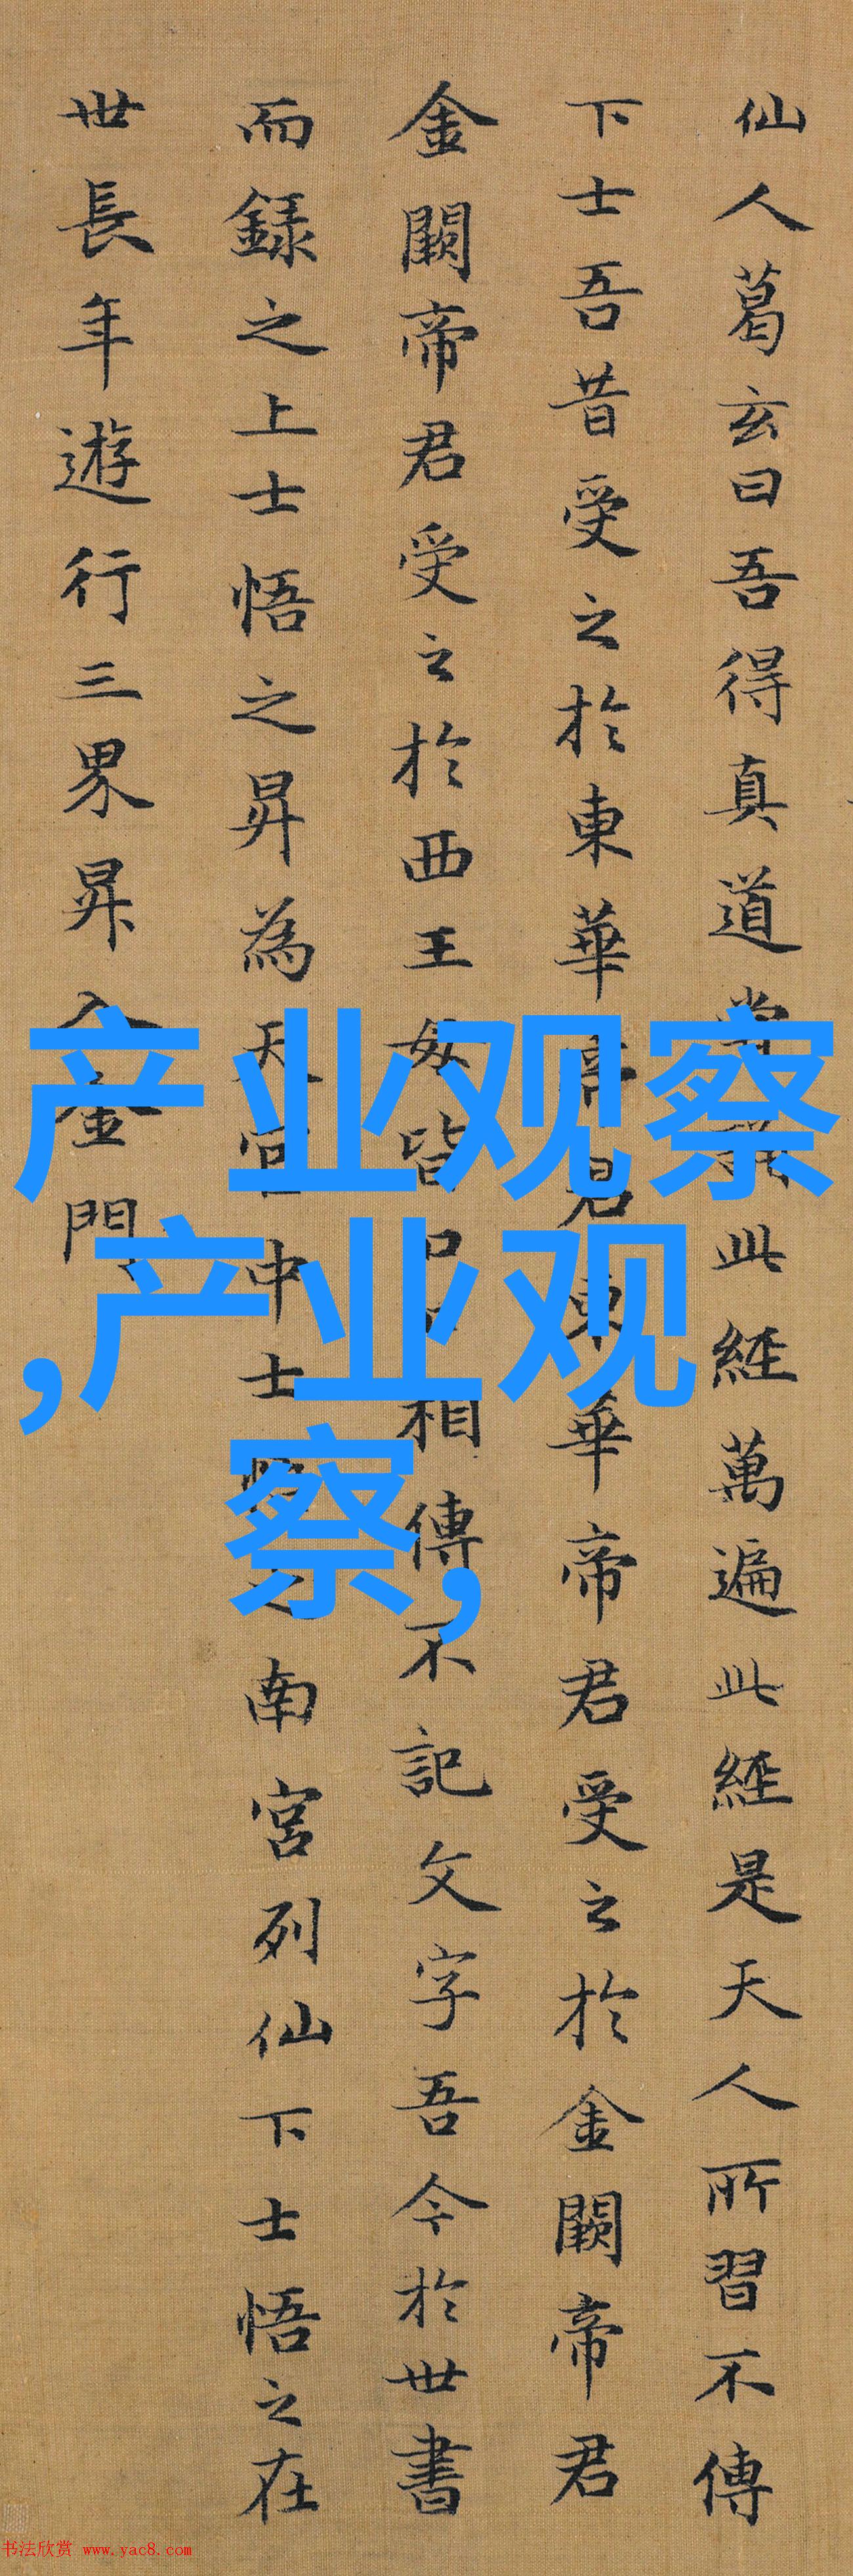 仙人葛玄曰吾得真道常此經萬遍此經是天人所習不傳
下士吾昔受之於東華帝君東華帝君受之於金闕帝君
金闕帝君受之於西王母皆口相傳不記文字吾今於世書
而録之上士悟之昇為天官中士悟之南宮列仙下士悟之在
世長年遊行三界昇入金門
产业观察
,产业观
察,
书法欣赏 www.yac8.com